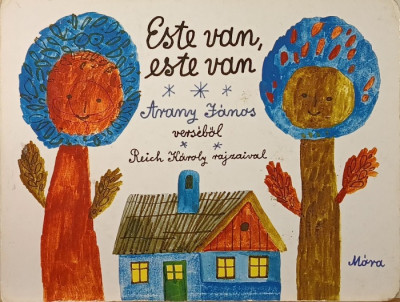 Este van,
este van
Arany János
verséből
Reich Károly rajzaival
Móra